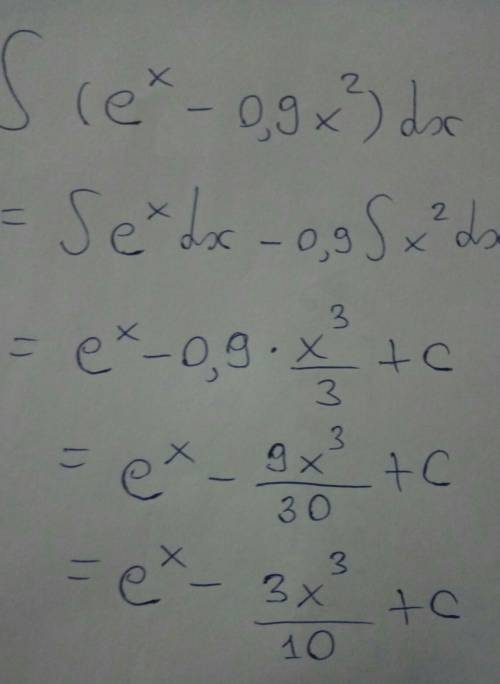 ∫ (eˣ - 0,9x²) dx
= ∫eˣdx - 0,9∫x²dx
= eˣ - 0,9 · x³/3 + c
= eˣ - 9x³/30 + C
= eˣ - 3x³/10 + c